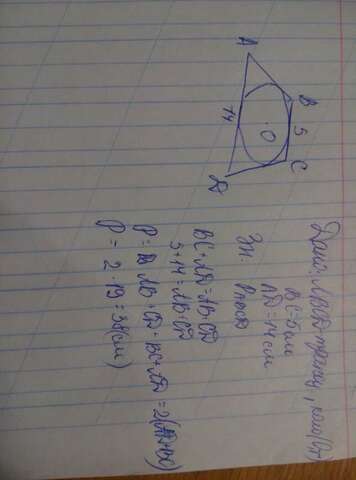 Дано: ABCD трапец, коло(O;r)
BC=5см
AD=14см
Зн. PABCD
BC+AD=AB+CD
5+14=AB+CD
P= AB+CD+BC+AD=2(AD+BC)
P= 2·19=38(см)
A
B
5
C
14
O
D